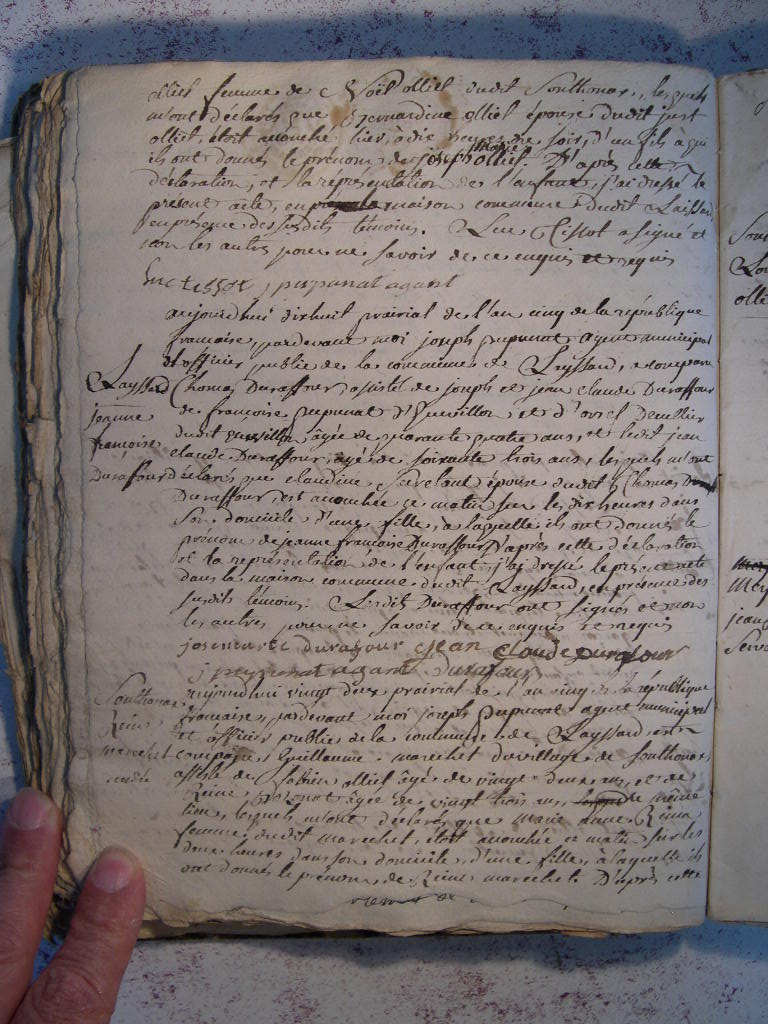 olliet femme de Noël olliet dudit Southonas, lesquels
m'ont déclarés que Bernardine olliet épouse dudit just
olliet, étoit acouché hier, à dix heures du soir, d'un fils à qui
ils ont donnés le prénom de joseph marie olliet. D'après cette
déclaration, et la représentation de l'enfant, j'ai dressé le
présent acte, en maison commune dudit Laissard
en présence des susdits témoins. Luc Tissot a signé et
non les autres pour ne savoir de ce enquis et requis
Luc tissot j pupunat agant
aujourdhui dixhuit prairial de l'an cinq de la république
francaise, pardevant moi joseph pupunat agent municipal
et officier public de la commune de Layssard, a comparu
Layssard Thomas Duraffour, assisté de joseph et jean claude Duraffour
jeanne de françoise pupunat d'
françoise dudit âgée de quarante quatre ans, et ledit jean
claude Duraffour, âgé de soixante trois ans, lesquels m'ont
Durafour déclarés que claudine épouse dudit Thomas
Duraffour, est acouchée ce matin sur les dix heures dans
son domicile d'une fille, a laquelle ils ont donnés le
prénom de jeanne françoise Duraffour D'après cette déclaration
et la représentation de l'enfant, j'ai dressé le présent acte
dans la maison commune dudit Layssard, en présence des
susdits témoins. Lesdits Duraffour ont signés et non
les autres pour ne savoir de ce enquis et requis
durafour jean claude durafour
j pupunat agant durafour
Southonas aujourdhui vingt deux prairial de l'an cinq de la république
Reine francaise, pardevant moi joseph pupunat agent municipal
et officier public de la commune de Layssard est
marechet comparu Guillaume marechet du village de Southonas
assisté de olliet âgé de vingt deux ans, et de
Reine âgée de vingt trois ans, même
lieu, lesquels m'ont déclarés que marie anne
femme dudit marechet, étoit acouchée ce matin sur les
deux heures dans son domicile, d'une fille, à laquelle ils
ont donnés le prénom de Reine marechet. D'après cette